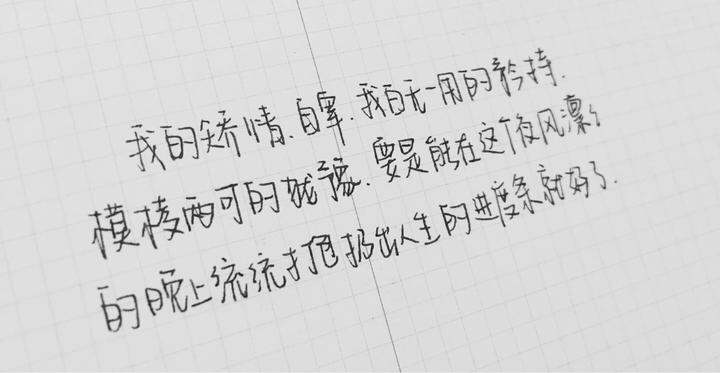 我的矫情.自卑.我百无一用的矜持.
模棱两可的犹豫.要是能在这个夜风凛凛
的晚上统统打包扔出人生的进度条就好了.